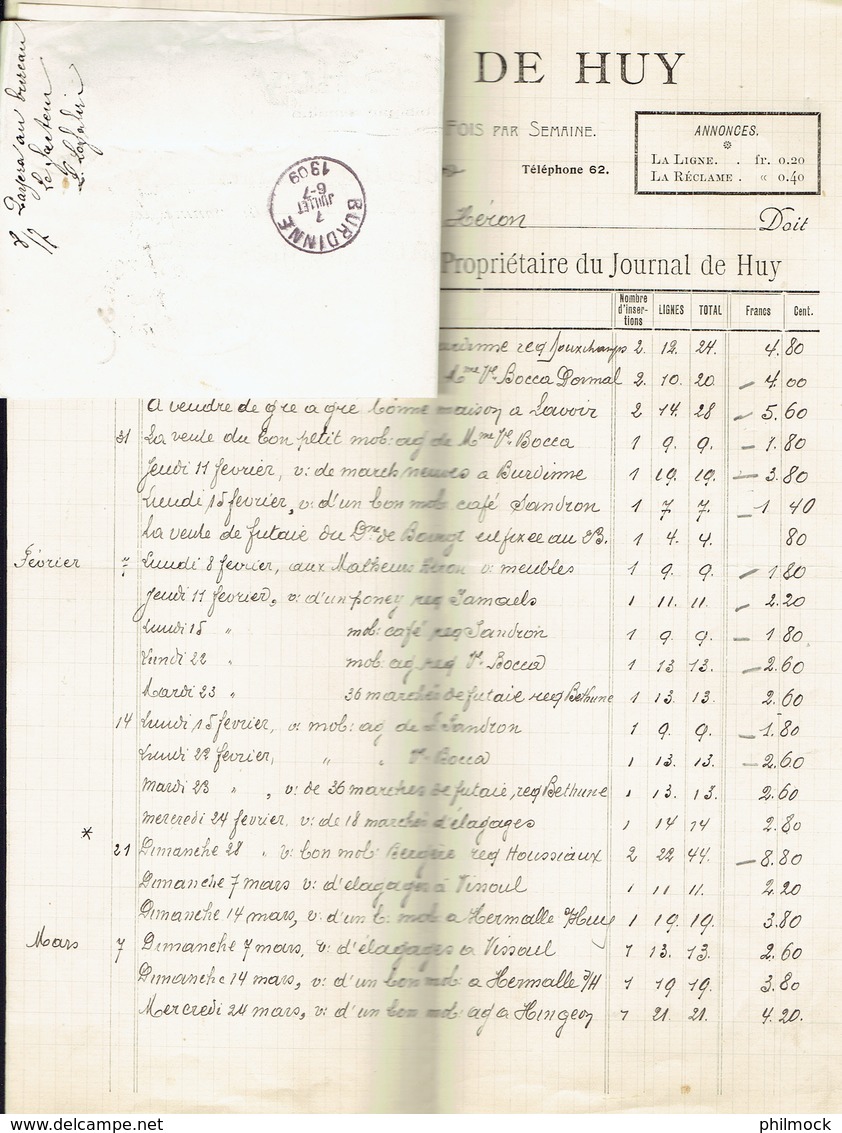 DE HUY
Fois par Semaine.
Téléphone 62.
ANNONCES.
La Ligne. . fr. 0.20
La Réclame. « 0.40
Héron Doit
Propriétaire du Journal de Huy
Passera au bureau
Le facteur
8/7
BURDINNE
7
JUILLET
6-7
1909
Nombre d'insertions LIGNES TOTAL Francs Cent.
req Jouxchamps 2. 12. 24. 4.80
Mme Ve Bocca Dormal 2. 10. 20 4.00
A vendre de gré à gré bonne maison à Lavoir 2 14. 28 5.60
31 La vente du bon petit mob: ag de Mme Ve Bocca 1 9. 9. 1.80
Jeudi 11 février, v: de march neuves à Burdinne 1 19. 19. 3.80
Lundi 15 février, v: d'un bon mob café Jandron 1 7 7. 1 40
La vente de futaie du Dne de est fixée au 23. 1 4. 4. 80
Février 7 Lundi 8 février, aux Matheurs Héron v: meubles 1 9. 9. 1.80
Jeudi 11 février, v: d'un poney req Samaels 1 11. 11. 2.20
Lundi 15 " mob: café req Jandron 1 9 9. 1.80
Lundi 22 " mob: ag req Ve Bocca 1 13 13. 2.60
Mardi 23 " 36 marchés de futaie req Bethune 1 13. 13. 2.60
14 Lundi 15 février, v: mob: ag de L Jandron 1 9. 9. 1.80
Lundi 22 février, " " Ve Bocca 1 13. 13. 2.60
Mardi 23 " , v: de 36 marchés de futaie, req Bethune 1 13. 13. 2.60
mercredi 24 février, v: de 18 marchés d'élagages 1 14 14 2.80
*
21 Dimanche 28 " v: bon mob: Bergère req Houssiaux 2 22 44. 8.80
Dimanche 7 mars v: d'élagages à Vissoul 1 11 11. 2.20
Dimanche 14 mars, v: d'un b: mob à Hermalle s/Huy 1 19. 19. 3.80
Mars 7 Dimanche 7 mars, v: d'élagages à Vissoul 1 13. 13. 2.60
Dimanche 14 mars, v: d'un bon mob: à Hermalle s/H 1 19 19. 3.80
Mercredi 24 mars, v: d'un bon mob ag à Hingeon 1 21. 21. 4.20.
www.delcampe.net
philmock